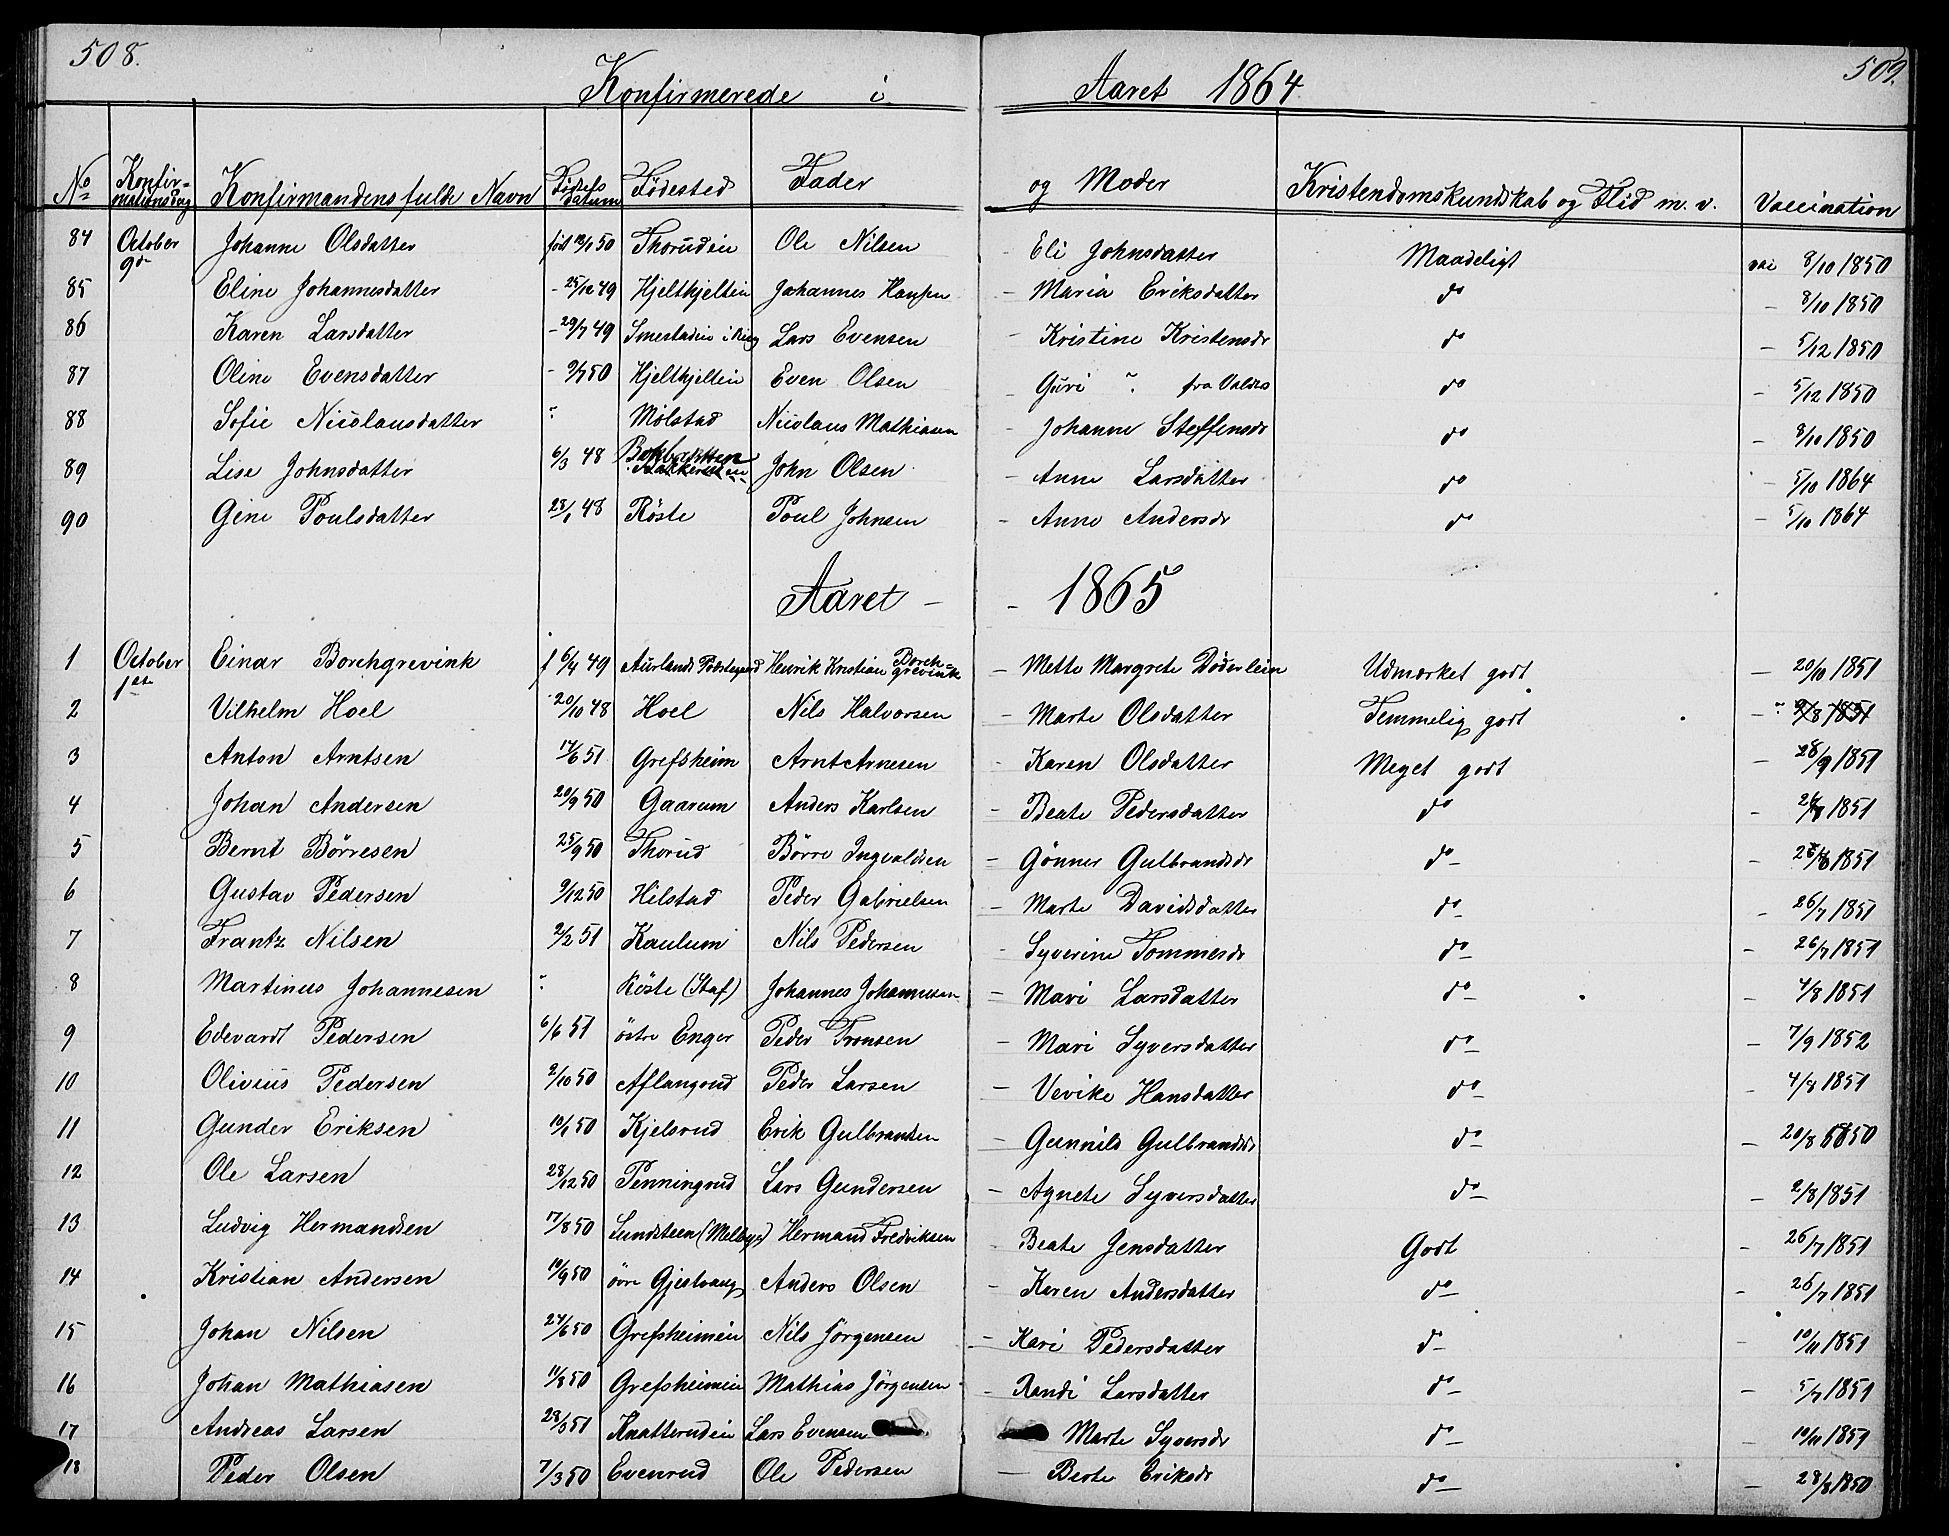 508. 509.
Konfirmerede i Aaret 1864
No Konfirmationsdag Konfirmandens fulde Navn Fødselsdatum Fødested Fader og Moder Kristendomskundskab og Flid m. v. Vaccination
84 October 9de Johanne Olsdatter født Thorudeie Ole Nilsen - Eli Johnsdatter Maadeligt vac 8/10 1850
85 Eline Johannesdatter - 25/12 49 Hjeltkjelteie Johannes Hansen - Maria Eriksdatter do - 8/10 1850
86 Karen Larsdatter - 29/7 49 Smestadeie i Ring Lars Evensen - Kristine Kristensdr do - 5/12 1850
87 Oline Evensdatter - 9/7 50 Hjeltkjelteie Even Olsen - Guri " fra Valdres do - 5/12 1850
88 Sofie Nicolausdatter " Molstad Nicolaus Mathiasen - Johanne Steffensdr do - 8/10 1850
89 Lise Johnsdatter 6/3 48 John Olsen - Anne Larsdatter do - 5/10 1864
90 Gine Poulsdatter 28/1 48 Röste Poul Johnsen - Anne Andersdr do - 5/10 1864
Aaret - - 1865
1 October 1ste Einar Borchgrevink f 6/4 49 Aurlands Præstegaard Henrik Kristian Borchgrevink - Mette Margrete Døderlein Udmærket godt - 20/10 1851
2 Vilhelm Hoel 20/10 48 Hoel Nils Halvorsen - Marte Olsdatter Temmelig godt - "
3 Anton Arntsen 17/6 51 Grefsheim Arnt Arnesen - Karen Olsdatter Meget godt - 28/9 1851
4 Johan Andersen 20/9 50 Gaarum Anders Karlsen - Beate Pedersdatter do - 1851
5 Bernt Börresen 25/9 50 Thorud Börre Ingvaldsen - Gönner Gulbrandsdr do - 1851
6 Gustav Pedersen 9/12 50 Hilstad Peder Gabrielsen - Marte Davidsdatter do - 26/7 1851
7 Frantz Nilsen 2/2 51 Kaulum Nils Pedersen - Syverine Tommesdr do - 26/7 1851
8 Martinus Johannesen " Röste (Staf) Johannes Johannesen - Mari Larsdatter do - 4/8 1851
9 Edevardt Pedersen 6/6 51 östre Enger Peder Tronsen - Mari Syversdatter do - 7/9 1852
10 Olivius Pedersen 2/10 50 Aflangrud Peder Larsen - Vevike Hansdatter do - 4/8 1851
11 Gunder Eriksen 10/1 50 Kjelsrud Erik Gulbrandsen - Gunnild Gulbrandsdr do - 20/8 1850
12 Ole Larsen 28/12 50 Penningrud Lars Gundersen - Agnete Syversdatter do - 2/8 1851
13 Ludvig Hermandsen 17/8 50 Sundsteen (Melbye) Hermand Fredriksen - Beate Jensdatter Godt - 26/7 1851
14 Kristian Andersen 10/9 50 övre Gjestvang Anders Olsen - Karen Andersdatter do - 26/7 1851
15 Johan Nilsen 24/6 50 Grefsheimeie Nils Jörgensen - Kari Pedersdatter do - 10/11 1851
16 Johan Mathiasen 11/8 50 Grefsheimeie Mathias Jörgensen - Randi Larsdatter do - 5/7 1851
17 Andreas Larsen 28/3 51 Knatterudeie Lars Evensen Marte Syversdr do - 10/11 1851
18 Peder Olsen 7/3 50 Evenrud Ole Pedersen - Berte Eriksdr do - 28/8 1850